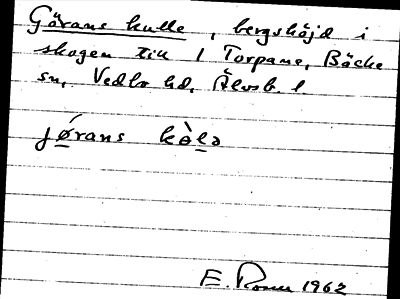 Görans kulle, bergshöjd i
skogen till 1 Torpane, Bäcke
sn, Vedbo hd, Älvsb. l
jǿrans kòlə
E. 1962